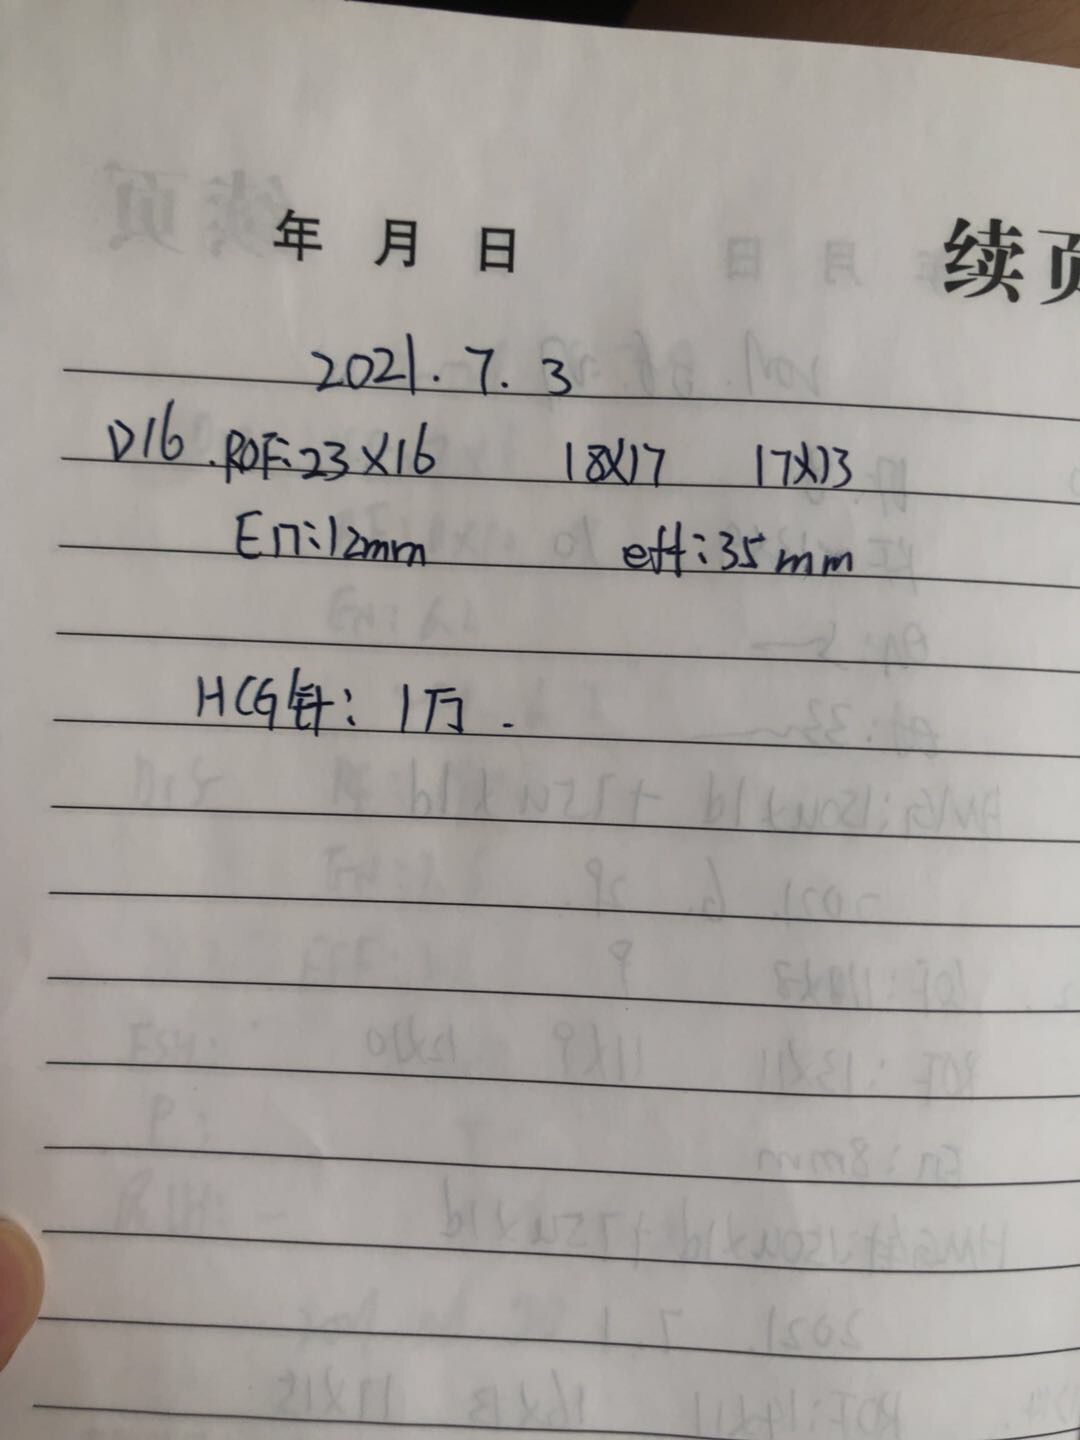 年 月 日
续页
2021.7.3
D16. ROF:23X16 18X17 17X13
En:12mm eff:35mm
HCG针:1万.